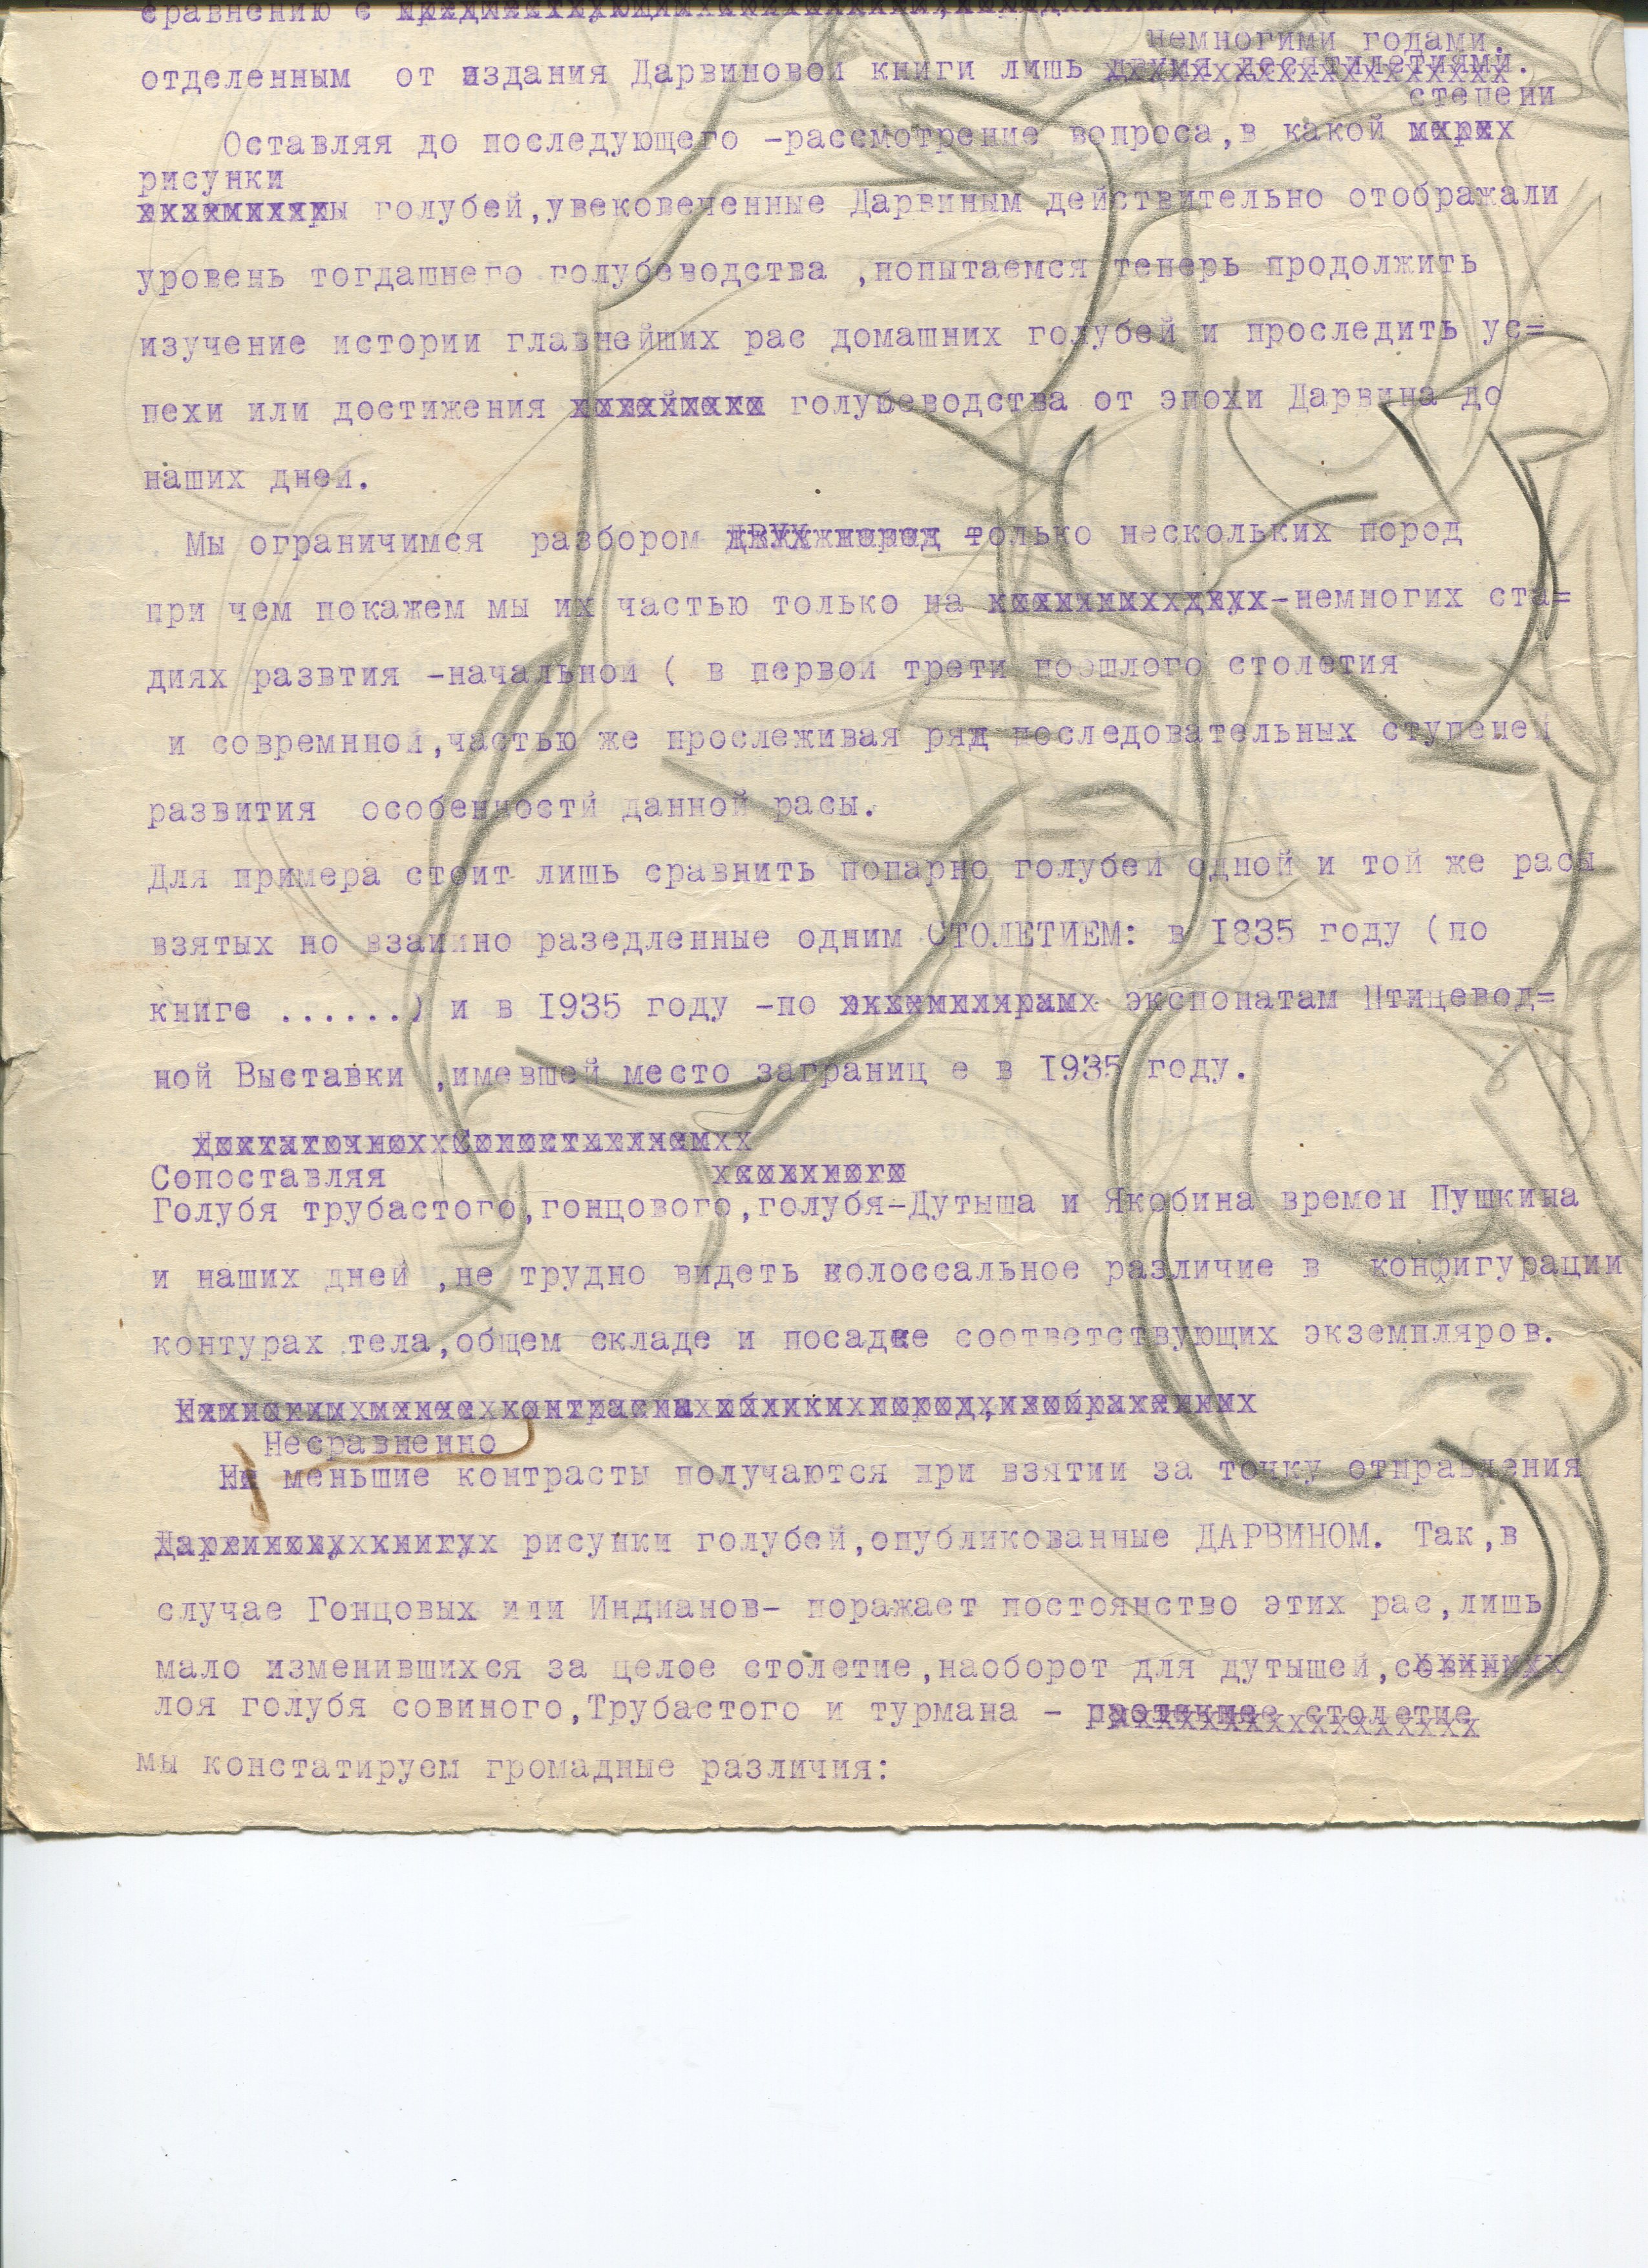 сравнению с
немногими годами.
отделенным от издания Дарвиновой книги лишь двумя десятилетиями.
степени
Оставляя до последующего -рассмотрение вопроса,в какой мере
рисунки
голубей,увековеченные Дарвиным действительно отображали
уровень тогдашнего голубеводства ,попытаемся теперь продолжить
изучение истории главнейших рас домашних голубей и проследить ус=
пехи или достижения голубеводства от эпохи Дарвина до
наших дней.
Мы ограничимся разбором двух пород только нескольких пород
при чем покажем мы их частью только на -немногих ста=
диях развтия -начальной ( в первой трети поошлого столетия
и совремнной,частью же прослеживая ряд последовательных ступеней
развития особенностй данной расы.
Для примера стоит лишь сравнить попарно голубей одной и той же расы
взятых но взаимно разедленные одним СТОЛЕТИЕМ: в 1835 году (по
книге ......) и в 1935 году -по экземплярам экспонатам Птицевод=
ной Выставки ,имевшей место заграниц е в 1935 году.
Сопоставляя
Голубя трубастого,гонцового,голубя-Дутыша и Якобина времен Пушкина
и наших дней ,не трудно видеть колоссальное различие в конфигурации
контурах тела,общем складе и посадке соответствующих экземпляров.
Несравненно
Не меньшие контрасты получаются при взятии за точку отправления
рисунки голубей,опубликованные ДАРВИНОМ. Так,в
случае Гонцовых или Индианов- поражает постоянство этих рас,лишь
мало изменившихся за целое столетие,наоборот для дутышей,совиных
лоя голубя совиного,Трубастого и турмана - протекшее столетие
мы констатируем громадные различия: